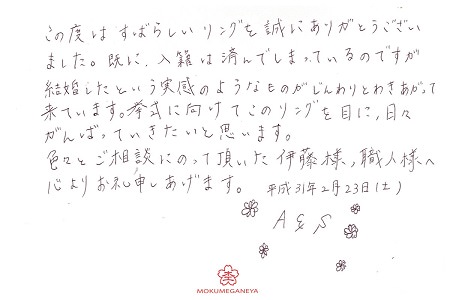 この度は すばらしい リングを 誠にありがとうござい
ました。既に、入籍は済んでしまっているのですが
結婚したという実感のようなものがじんわりとわきあがって
来ています。挙式に向けてこのリングを目に、日々
がんばっていきたいと思います。
色々とご相談にのって頂いた伊藤様、職人様へ
心よりお礼申しあげます。 平成31年2月23日(土)
A & S
MOKUMEGANEYA